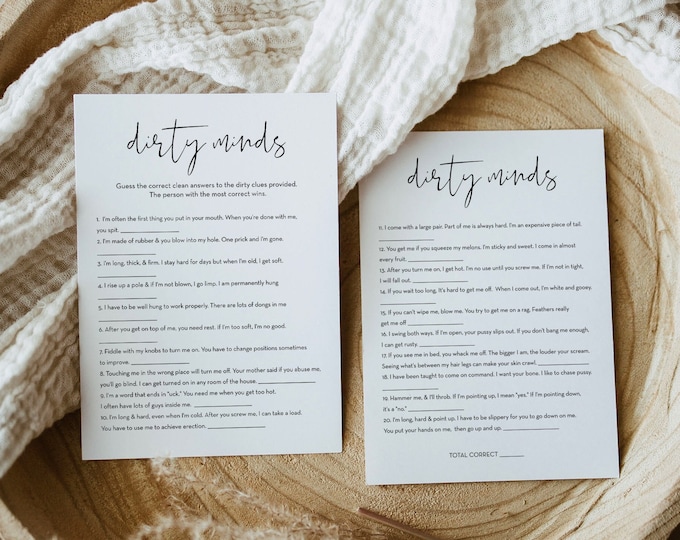 dirty minds
Guess the correct clean answers to the dirty clues provided.
The person with the most correct wins.
1. I'm often the first thing you put in your mouth. When you're done with me,
you spit. ____________
2. I'm made of rubber & you blow into my hole. One prick and i'm gone.
____________
3. I'm long, thick, & firm. I stay hard for days but when I'm old, I get soft.
____________
4. I rise up a pole & if I'm not blown, I go limp. I am permanently hung
____________
5. I have to be well hung to work properly. There are lots of dongs in me
____________
6. After you get on top of me, you need rest. If I'm too soft, I'm no good.
____________
7. Fiddle with my knobs to turn me on. You have to change positions sometimes
to improve. ____________
8. Touching me in the wrong place will turn me off. Your mother said if you abuse me,
you'll go blind. I can get turned on in any room of the house. ____________
9. I'm a word that ends in "uck." You need me when you get too hot.
I often have lots of guys inside me. ____________
10. I'm long & hard, even when I'm cold. After you screw me, I can take a load.
You have to use me to achieve erection. ____________
dirty minds
11. I come with a large pair. Part of me is always hard. I'm an expensive piece of tail.
____________
12. You get me if you squeeze my melons. I'm sticky and sweet. I come in almost
every fruit. ____________
13. After you turn me on, I get hot. I'm no use until you screw me. If I'm not in tight,
I will fall out. ____________
14. If you wait too long, It's hard to get me off. When I come out, I'm white and gooey.
____________
15. If you can't wipe me, blow me. You try to get me on a rag. Feathers really
get me off ____________
16. I swing both ways. If I'm open, your pussy slips out. If you don't bang me enough,
I can get rusty. ____________
17. If you see me in bed, you whack me off. The bigger I am, the louder your scream.
Seeing what's between my hair legs can make your skin crawl. ____________
18. I have been taught to come on command. I want your bone. I like to chase pussy.
____________
19. Hammer me, & I'll throb. If I'm pointing up, I mean "yes." If I'm pointing down,
it's a "no." ____________
20. I'm long, hard & point up. I have to be slippery for you to go down on me.
You put your hands on me, then go up and up. ____________
TOTAL CORRECT ______